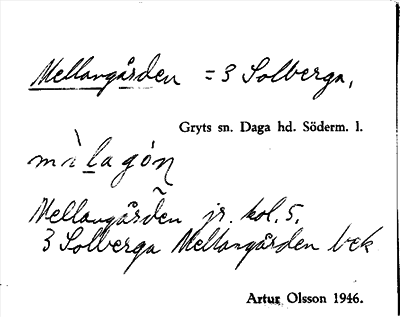 Mellangården = 3 Solberga,
Gryts sn. Daga hd. Söderm. l.
mìlagón
Mellangården jr. kol. 5.
3 Solberga Mellangården bek
Artur Olsson 1946.